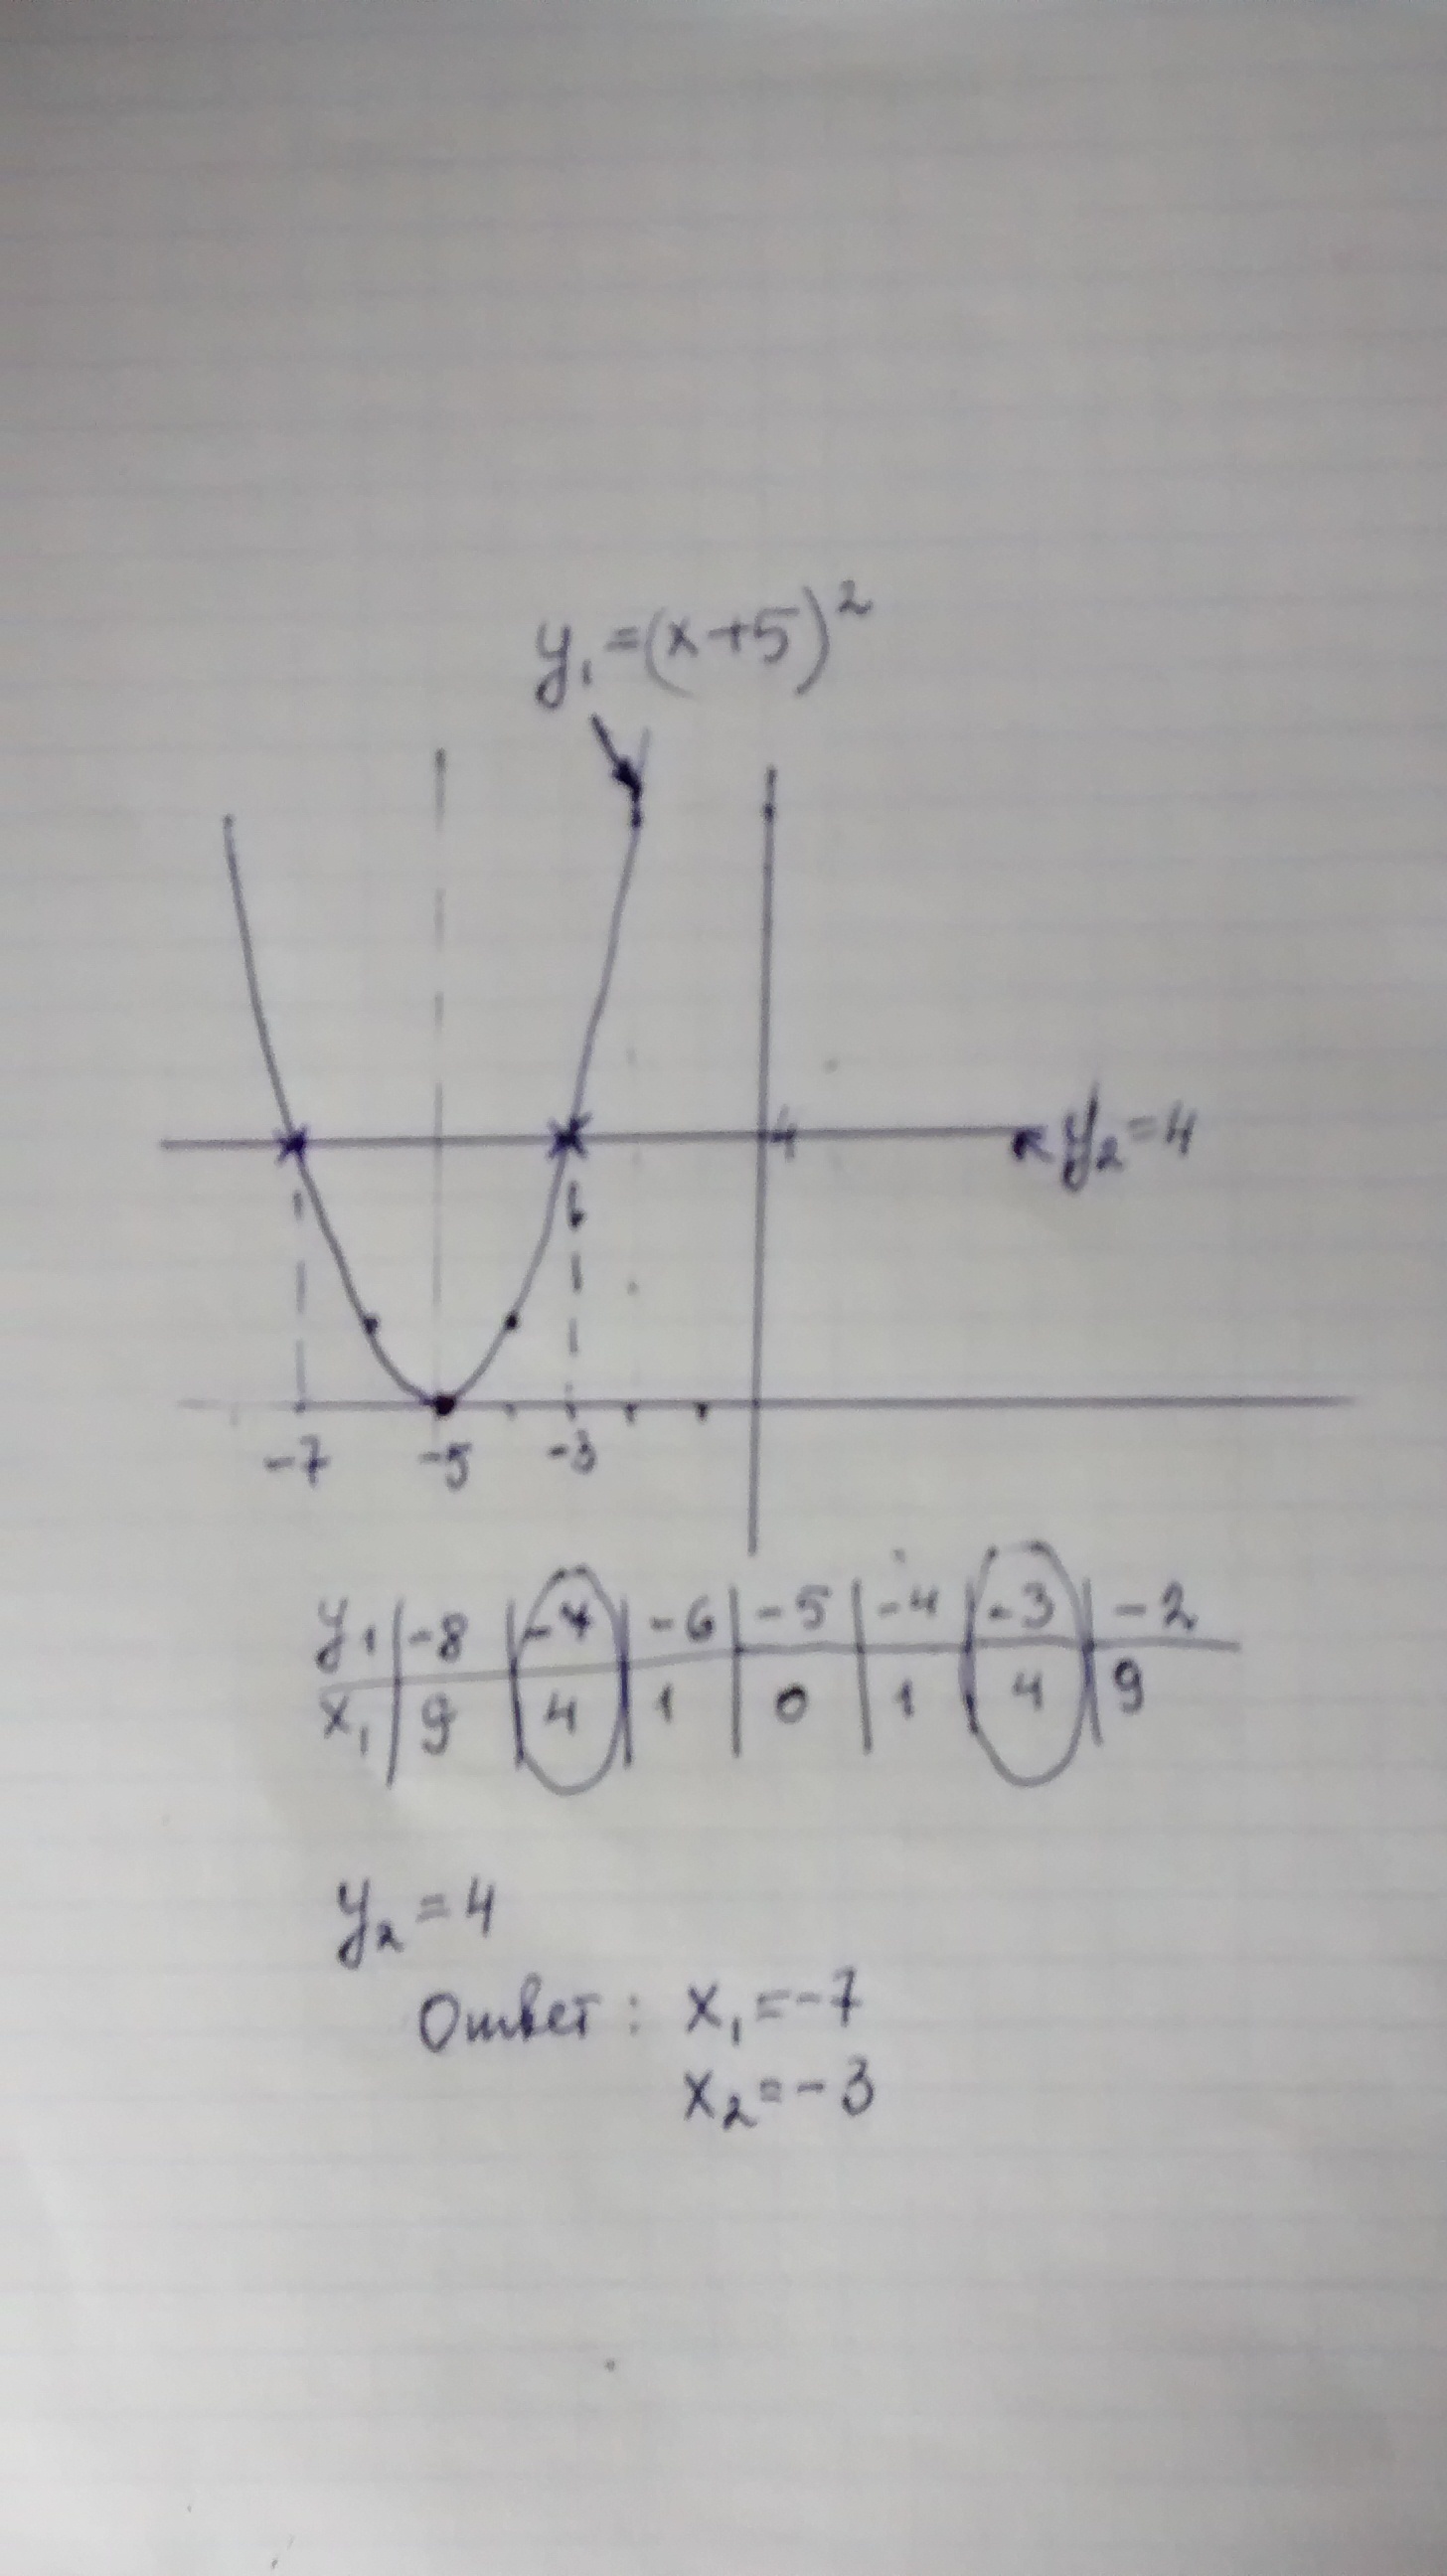 y₁=(x+5)²
4
y₂=4
-7 -5 -3
y₁ -8 -7 -6 -5 -4 -3 -2
x₁ 9 4 1 0 1 4 9
y₂=4
Ответ: x₁=-7
x₂=-3